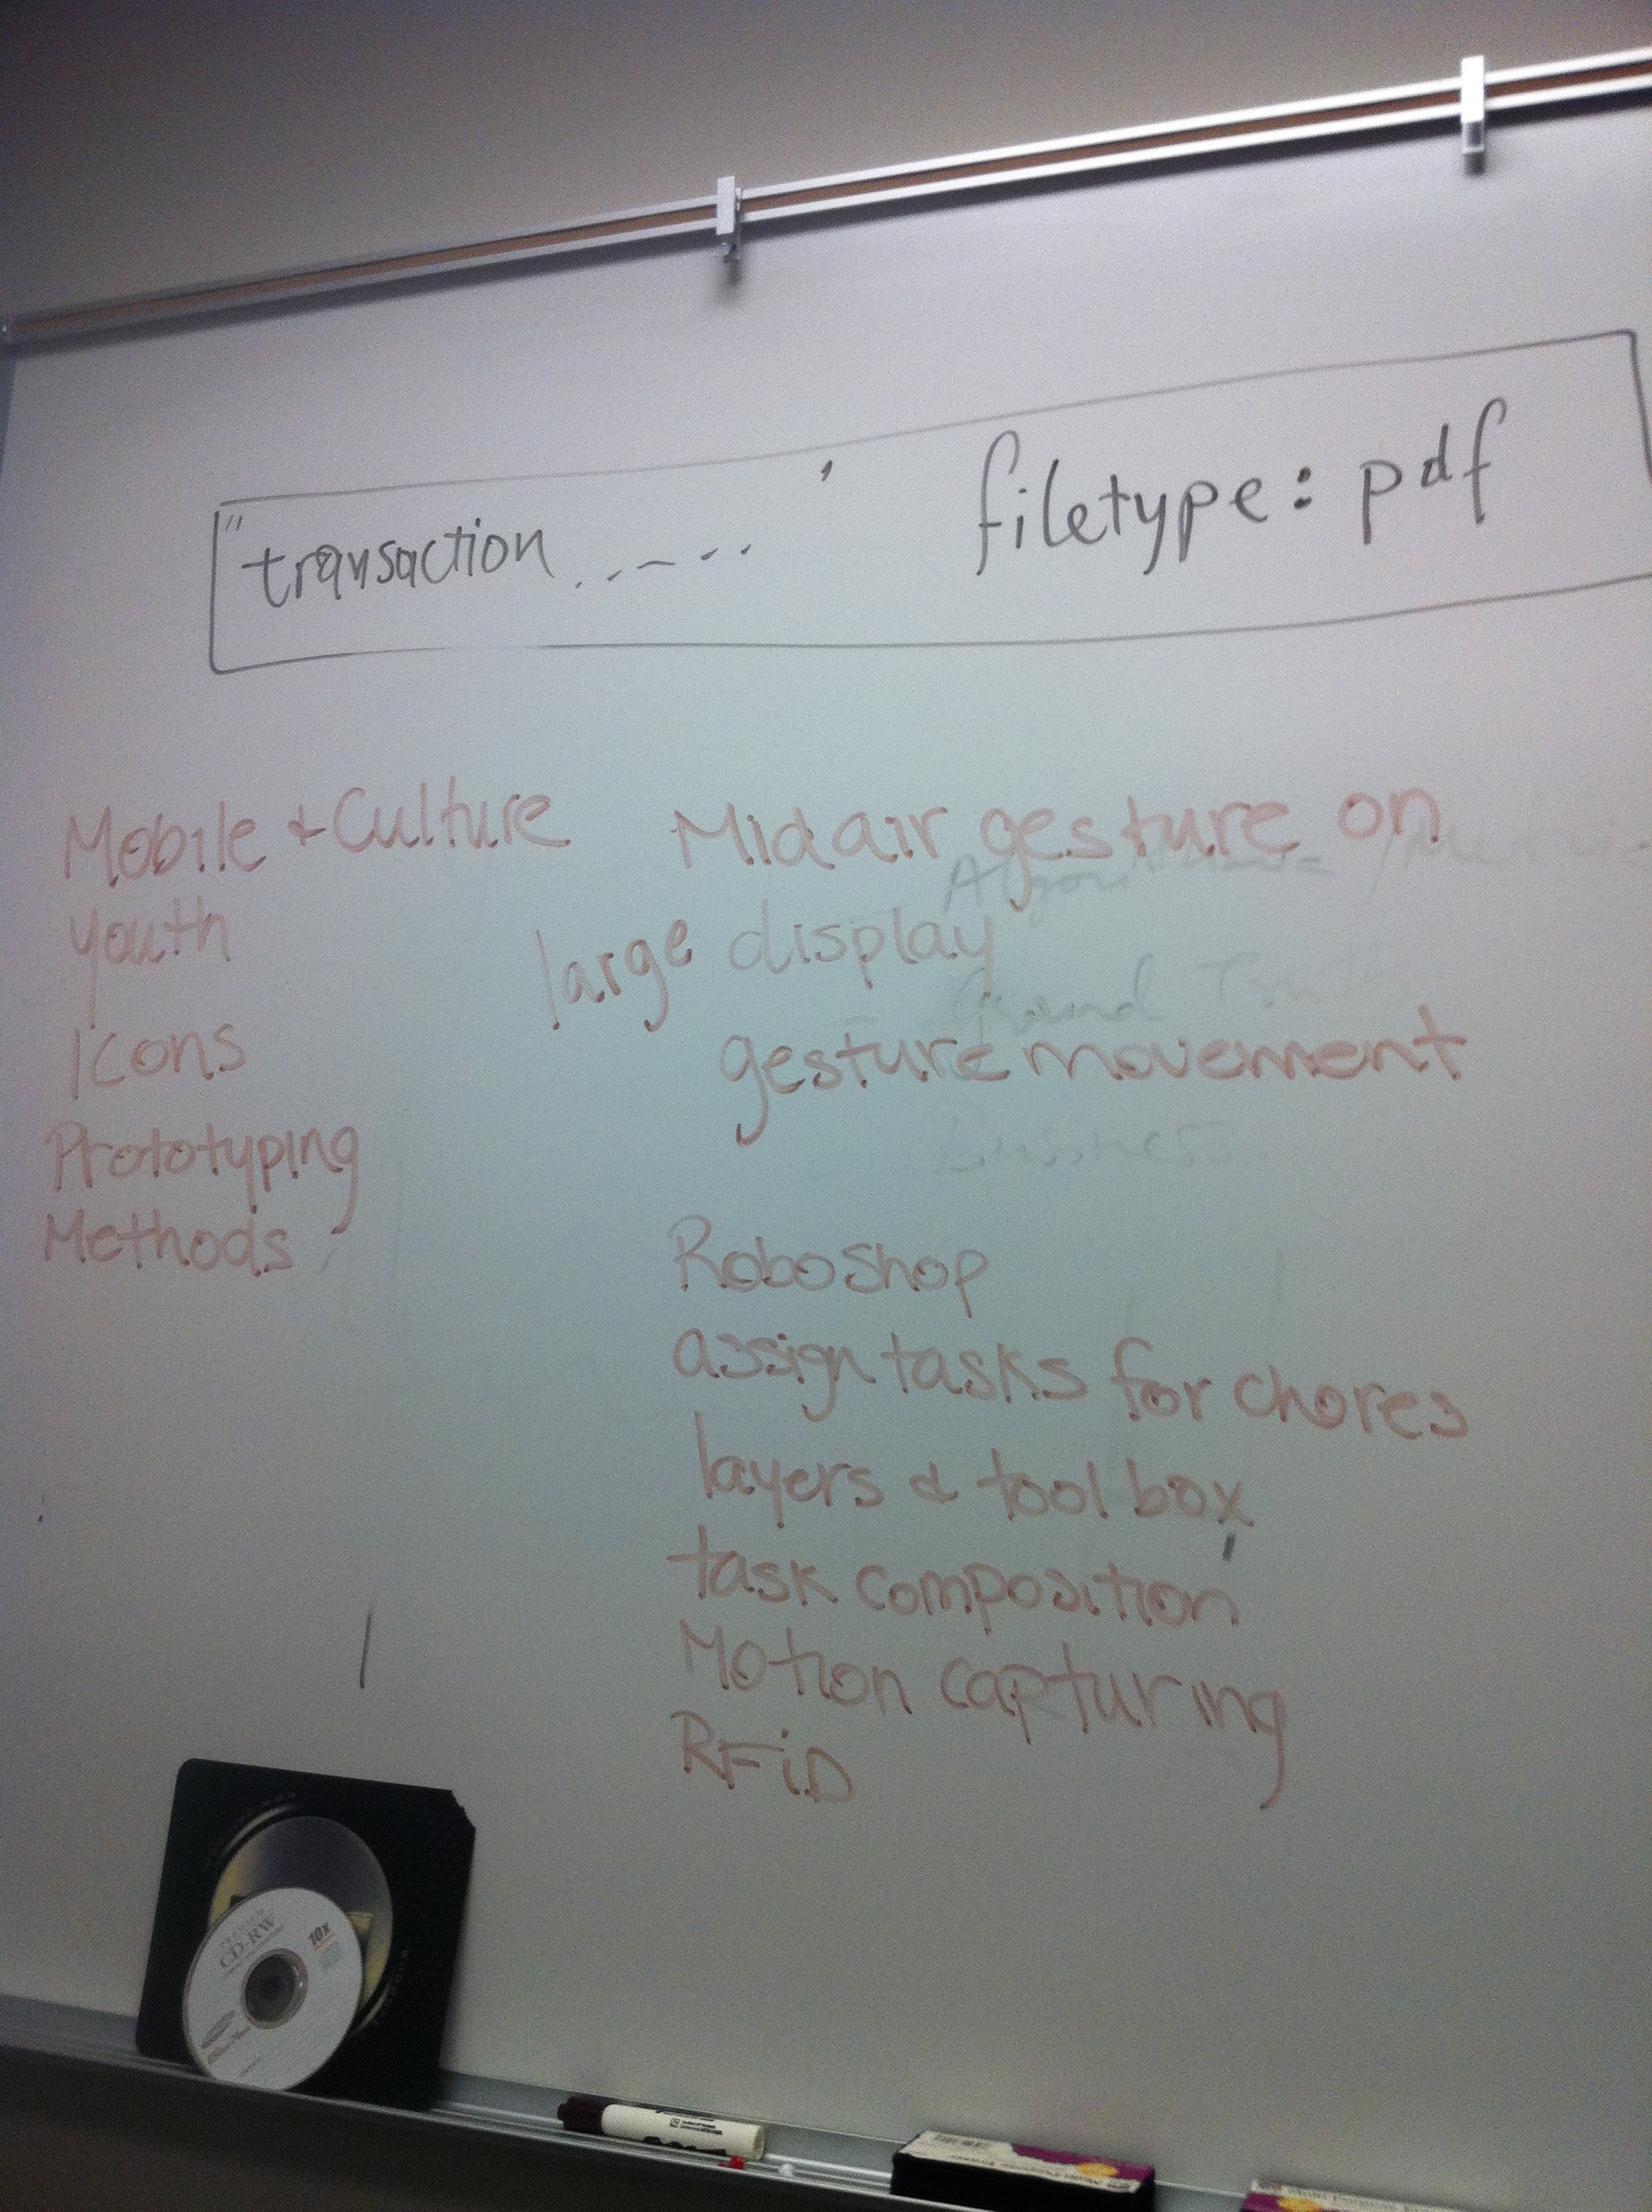 "transaction . . - - . . ' filetype: pdf
Mobile + Culture
youth
Icons
Prototyping
Methods
Midair gesture on
large display
gesture movement
Ground
Business
RoboShop
assign tasks for chores
layers & tool box
task composition
Motion capturing
RFiD
CD-RW
10x